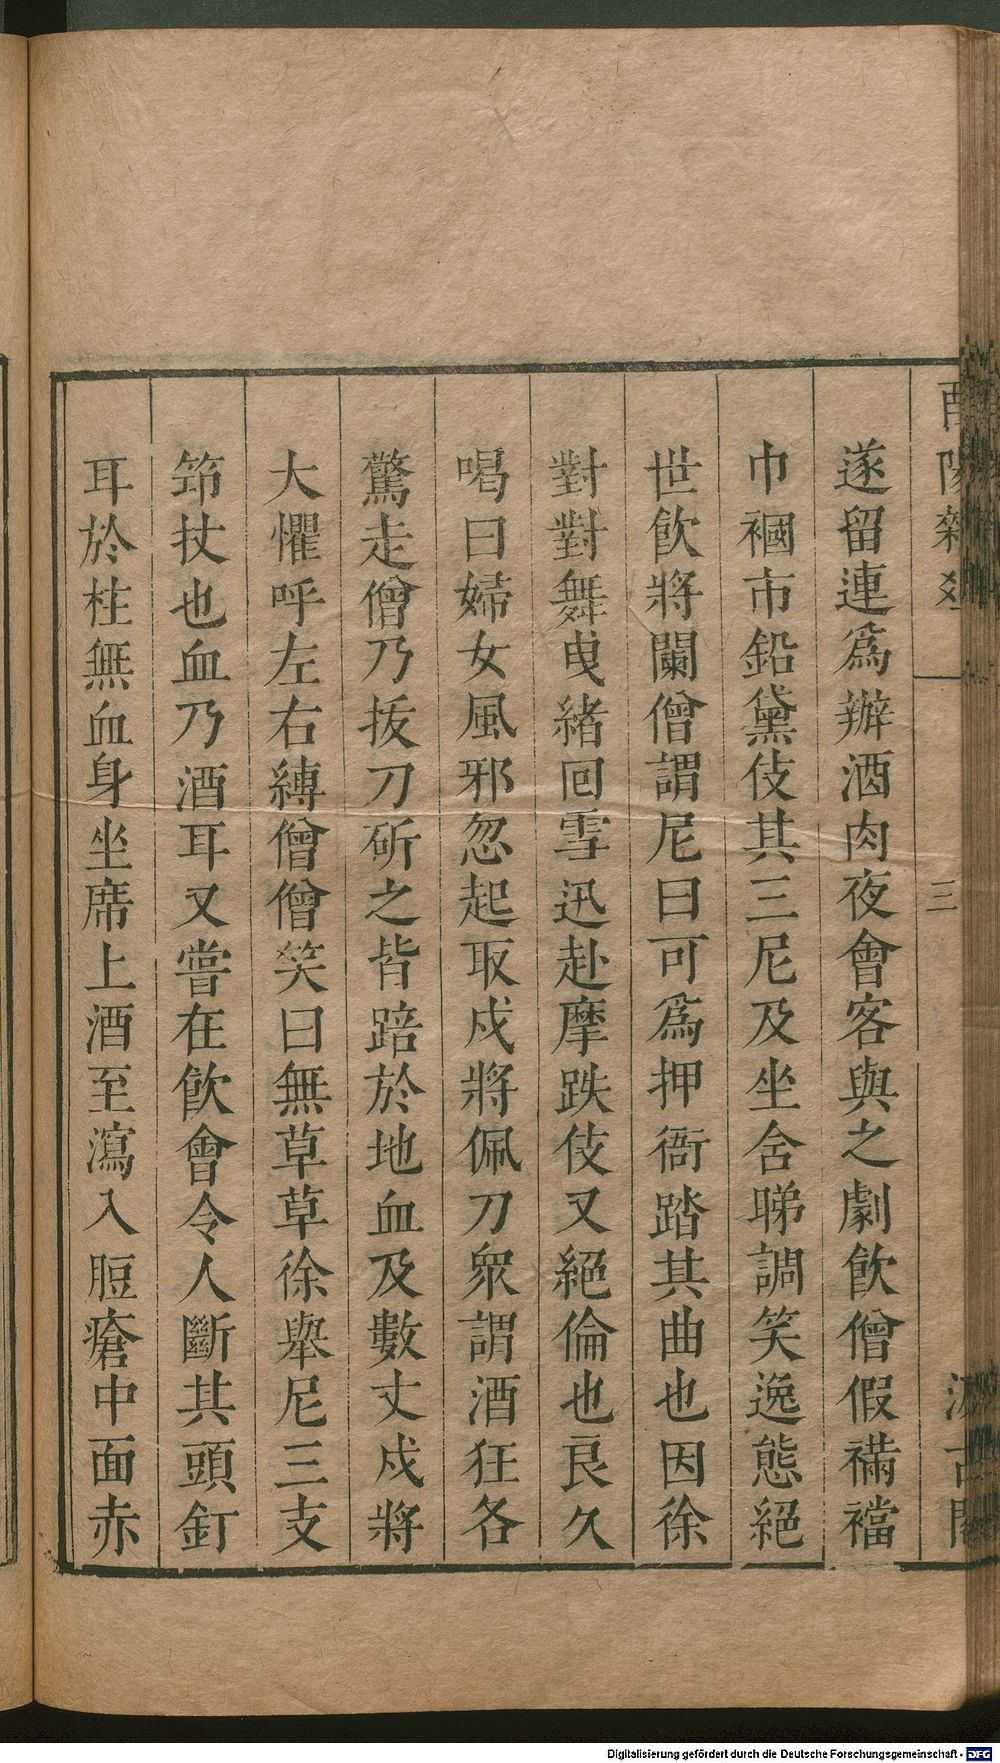 酉陽雜
三
汲古閣
遂留連爲辦酒肉夜會客與之劇飲僧假裲襠
巾幗市鉛黛伎其三尼及坐含睇調笑逸態絕
世飲將闌僧謂尼曰可爲押衙踏其曲也因徐
對對舞曳緒回雪迅赴摩跌伎又絕倫也良久
喝曰婦女風邪忽起取戍將佩刀衆謂酒狂各
驚走僧乃拔刀斫之皆踣於地血及數丈戍將
大懼呼左右縛僧僧笑曰無草草徐舉尼三支
筇杖也血乃酒耳又嘗在飲會令人斷其頭釘
耳於柱無血身坐席上酒至瀉入脰瘡中面赤
Digitalisierung gefördert durch die Deutsche Forschungsgemeinschaft - DFG